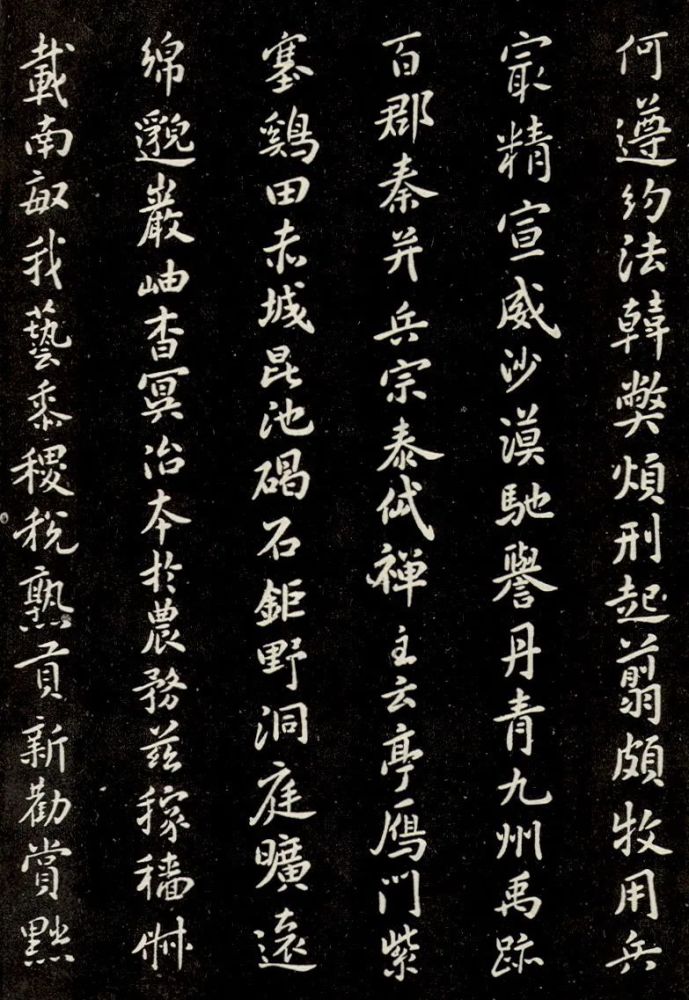 何遵約法韓弊煩刑起翦頗牧用兵
冣精宣威沙漠馳譽丹青九州禹跡
百郡秦并岳宗泰岱禪主云亭鴈門紫
塞鷄田赤城昆池碣石鉅野洞庭曠遠
綿邈巖岫杳冥治本於農務茲稼穡俶
載南畝我藝黍稷稅熟貢新勸賞黜